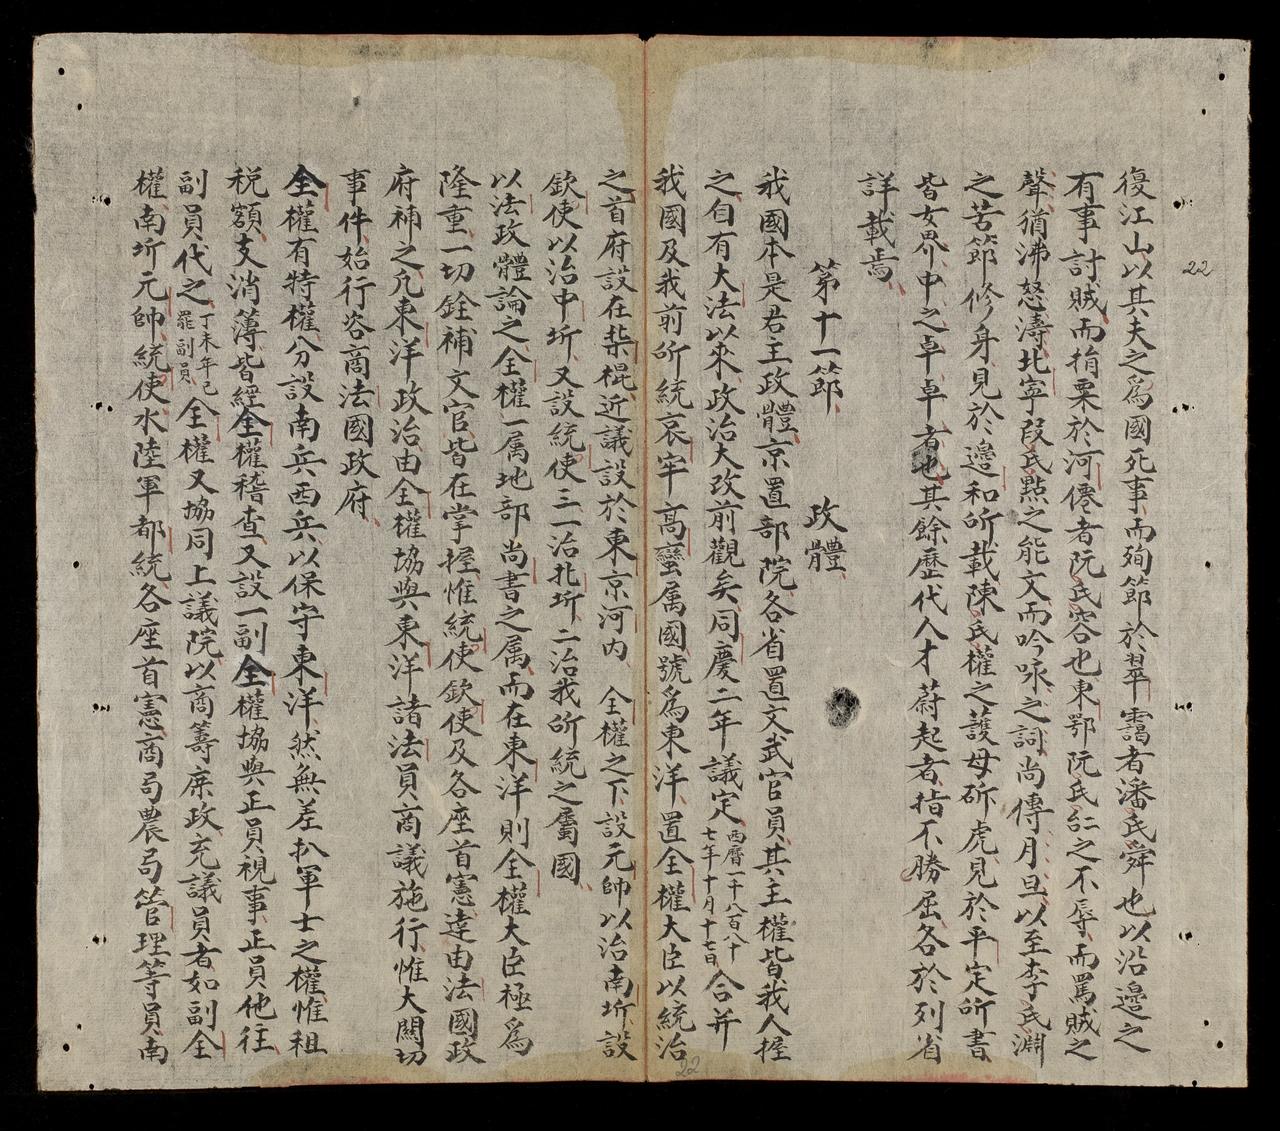 復江山以其夫之為國死事而殉節於翠靄者潘氏舜也以沿邊之
有事討賊而捐粟於河僊者阮氏容也東鄂阮氏之不辱而罵賊之
聲猶沸怒濤北寧段氏點之能文而吟咏之詞尚傳月旦以至李氏淵
之苦節修身見於邊和所載陳氏權之護母斫虎見於平定所書
皆女界中之卓卓者也其餘歷代人才蔚起者指不勝屈各於列省
詳載焉
第十一節 政體
我國本是君主政體京置部院各省置文武官員其主權皆我人握
之自有大法以來政治大改前觀矣同慶二年議定西曆一千八百八十七年十月十七日合并
我國及我前所統哀牢高蠻属國號為東洋置全權大臣以統治
之首府設在柴棍近議設於東京河内 全權之下設元帥以治南圻設
欽使以治中圻又設統使三一治北圻二治我所統之屬國
以法政體論之全權一属地部尚書之属而在東洋則全權大臣極為
隆重一切銓補文官皆在掌握惟統使欽使及各座首憲達由法國政
府補之凡東洋政治由全權協與東洋諸法員商議施行惟大關切
事件始行咨商法國政府
全權有特權分設南兵西兵以保守東洋然無差扒軍士之權惟租
税額支消薄皆經全權稽查又設一副全權協與正員視事正員他往
副員代之丁未年已罷副員全權又協同上議院以商籌庶政充議員者如副全
權南圻元帥統使水陸軍都統各座首憲商局農局管理等員南
22
22